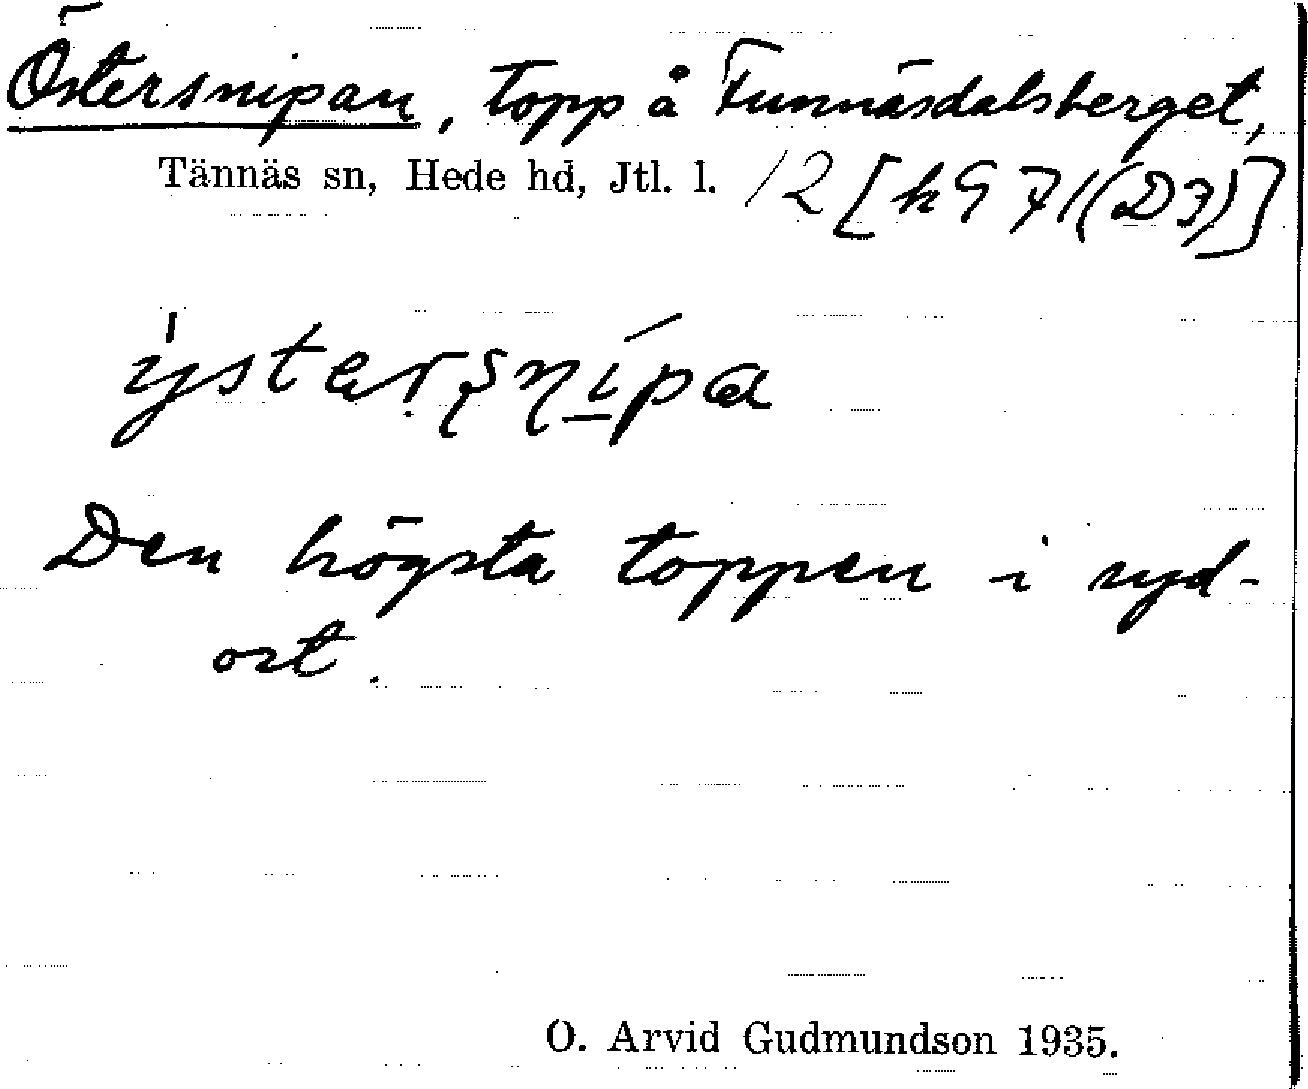 Östersnipan, topp å Funnäsdalsberget,
Tännäs sn, Hede hd, Jtl. l. 12 [k 971(D3)]
Den högsta toppen i syd-
ost.
O. Arvid Gudmundson 1935.